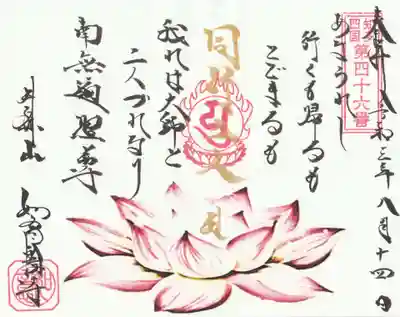 奉拝 令和三年八月十四日
知多四国
第四十六番
あなうれし
行くも帰るも
とどまるも
我れは大師と
二人づれなり
同行二人
南無遍照尊
井際山 如意輪寺